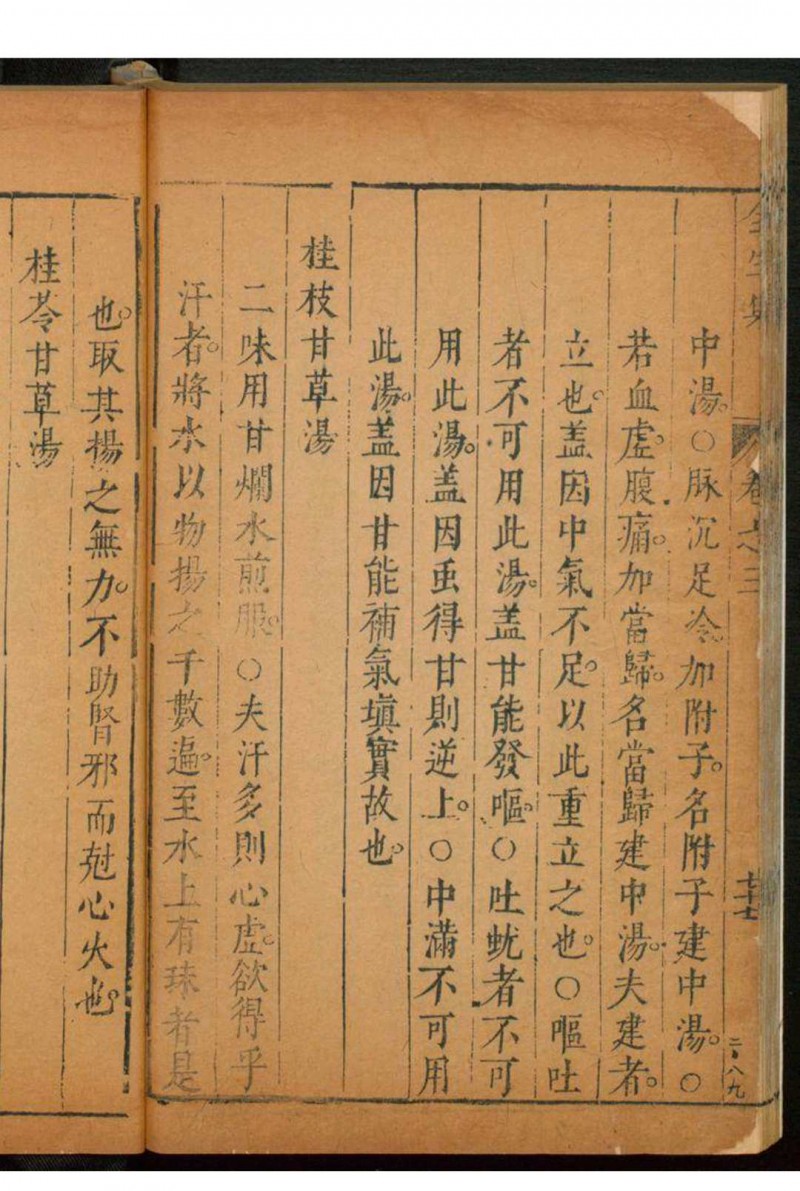 全生集
卷之三
七十七
二·八九
中湯。○脉沉足冷。加附子。名附子建中湯。○
若血虛腹痛。加當歸。名當歸建中湯。夫建者。
立也。蓋因中氣不足。以此重立之也。○嘔吐
者不可用此湯。蓋甘能發嘔。○吐蚘者不可
用此湯。蓋因䖝得甘則逆上。○中滿不可用
此湯。蓋因甘能補氣塡實故也。
桂枝甘草湯
二味用甘爛水煎服。○夫汗多則心虛。欲得乎
汗者。將水以物揚之千數遍。至水上有珠者是
也。取其揚之無力。不助腎邪而尅心火也。
桂苓甘草湯